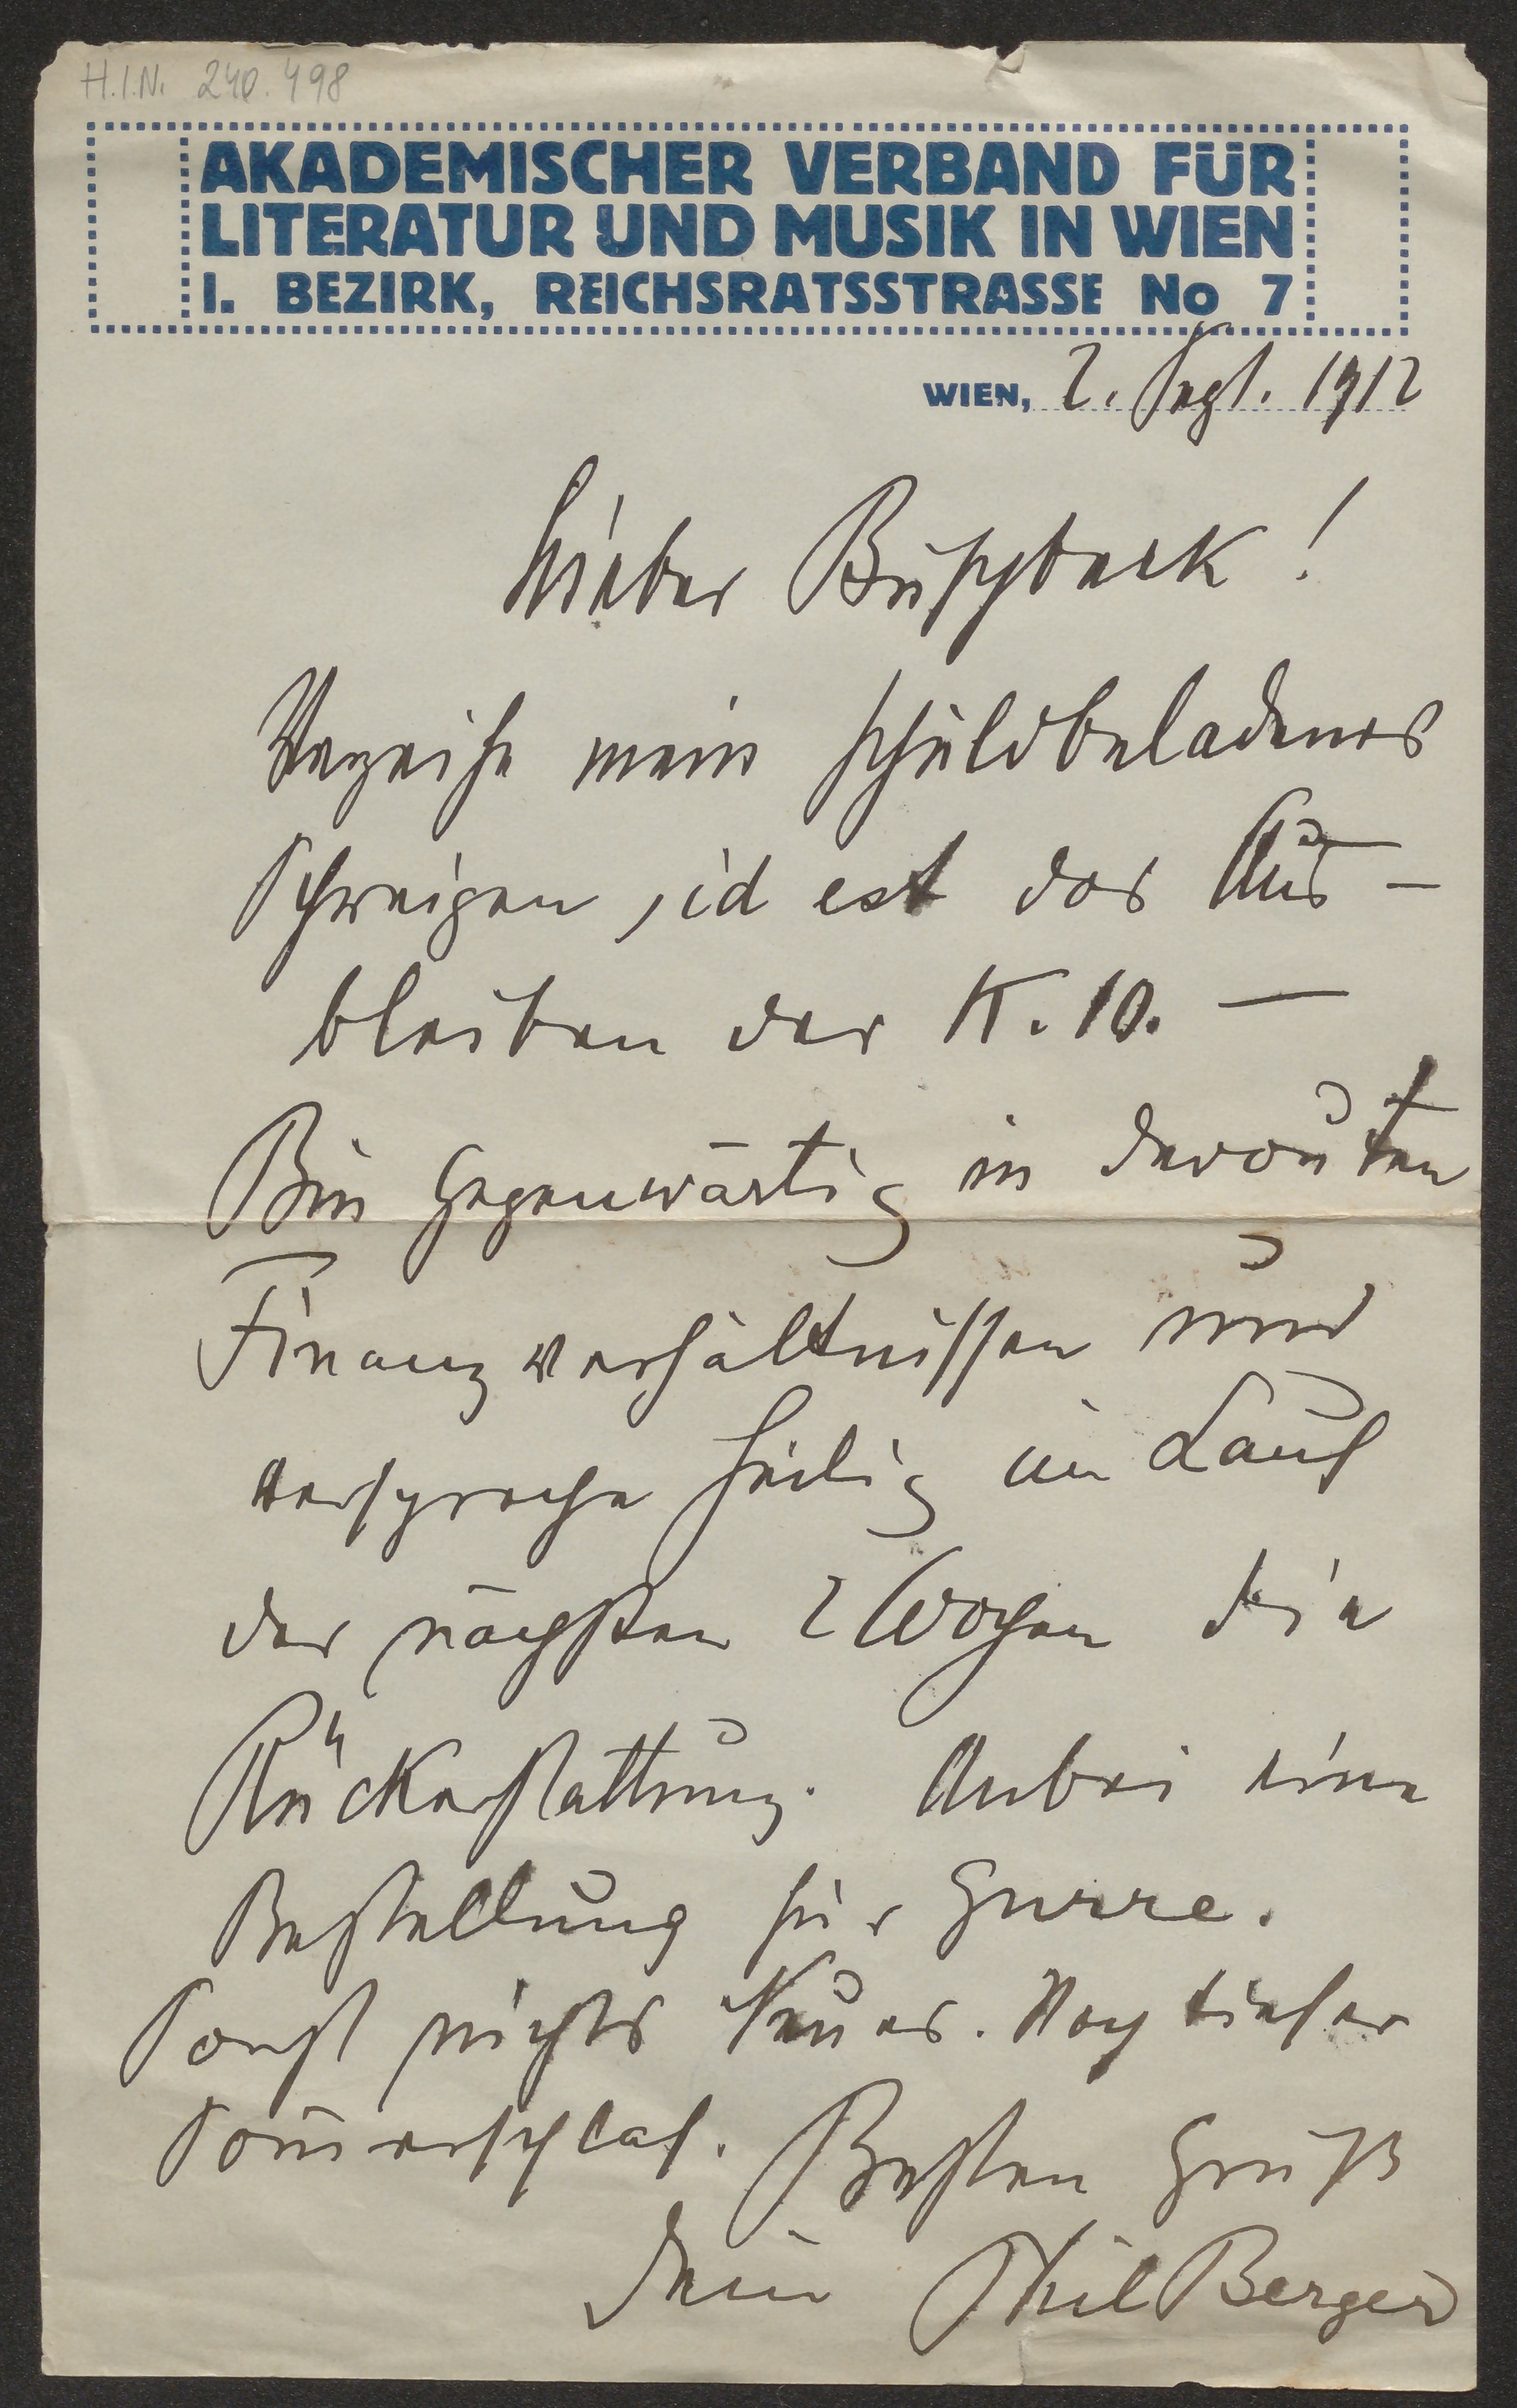 H.I.N. 240.498
AKADEMISCHER VERBAND FÜR
LITERATUR UND MUSIK IN WIEN
I. BEZIRK, REICHSRATSSTRASSE No 7
WIEN, 2. Sept. 1912
Lieber Buschbeck!
Verzeihe mein schuldbeladenes
Schweigen, id est das Aus-
bleiben der K. 10.—
Bin gegenwärtig in derouten
Finanzverhältnissen und
verspreche heilig im Lauf
der nächsten 2 Wochen die
Rückerstattung. Anbei eine
Bestellung für Gurre.
Sonst nichts Neues. Noch tiefer
Som̅erschlaf. Besten Gruß
Dein Phil Berger